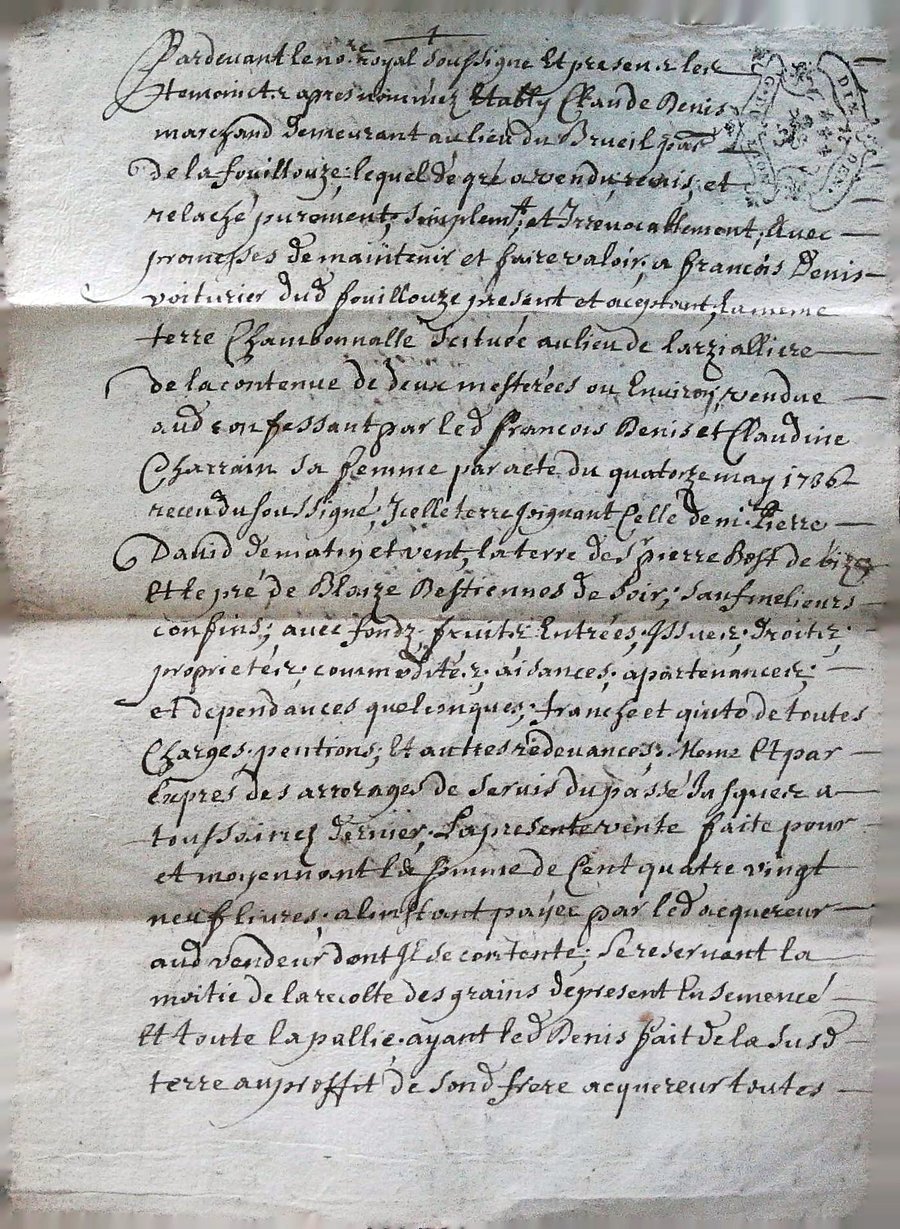 Pardevant le no.re royal soussigné Et presens les
temoins apres nommez Etably Claude Denis
marchand demeurant au lieu du Brueil par
de la fouillouze, lequel de gré a vendu, remis, et
relaché purement, simplemt, et Irrevocablement, Avec
promesses de maintenir et faire valoir, a francois Denis
voiturier dud fouillouze present et aceptant, la meme
terre Chambonnalle scituée au lieu de larzalliere
de la contenue de deux mesterées ou Environ, vendue
aud confessant par led francois Denis et Claudine
Charrain sa femme par acte du quatorze may 1736
receu du soussigné, Icelle terre joignant Celle de m. Pierre
David de matin et vent, la terre de Sr pierre Bost de bize
Et le pré de Blaize Bestiennes de soir, sauf melieurs
confins, avec fondz, fruits, Entrées, Issues, droits,
proprietés, commodités, aisances, apartenances,
et dependances quelconques, franche et quito de toutes
Charges, pentions, Et autres redevances, Meme Et par
Expres des arrerages de servis du passé Jusques a
toussaincz dernier, La presente vente faite pour
et moyennant la somme de Cent quatre vingt
neuf livres, a linstant payée par led acquereur
aud vendeur dont Il se contente, Se reservant la
moitie de la recolte des grains de present Ensemencé
Et toute la pallie, ayant led Denis fait de la susd
terre au proffit de sond frere acquereur toutes